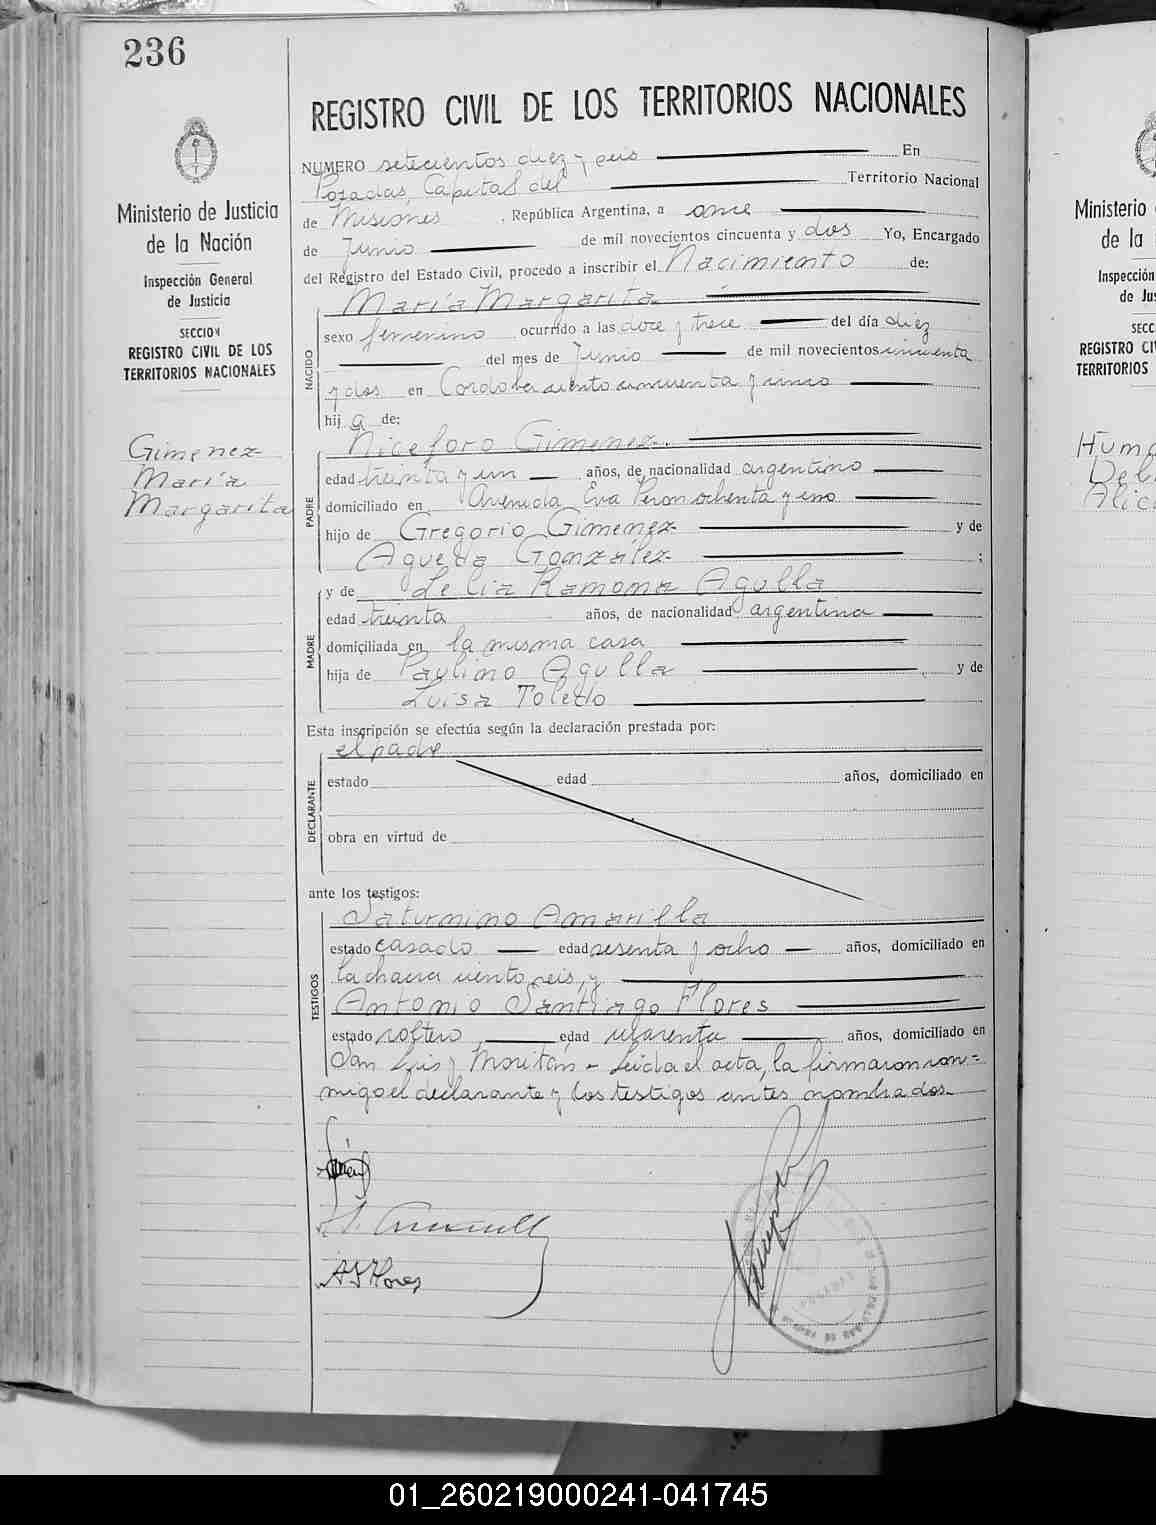 236
REGISTRO CIVIL DE LOS TERRITORIOS NACIONALES
Ministerio de Justicia
de la Nación
Inspección General
de Justicia
SECCION
REGISTRO CIVIL DE LOS
TERRITORIOS NACIONALES
Gimenez
María
Margarita
NUMERO setecientos diez y seis En
Posadas, Capital del Territorio Nacional
de Misiones, República Argentina, a once
de Junio de mil novecientos cincuenta y dos Yo, Encargado
del Registro del Estado Civil, procedo a inscribir el Nacimiento de:
NACIDO
María Margarita
sexo femenino ocurrido a las doce y trece del día diez
del mes de Junio de mil novecientos cincuenta
y dos en Cordoba ciento cincuenta y cinco
hij a de:
PADRE
Niceforo Gimenez
edad treinta y un años, de nacionalidad argentino
domiciliado en Avenida Eva Peron ochenta y uno
hijo de Gregorio Gimenez y de
Agueda González ;
MADRE
y de Lelia Ramona Agulla
edad treinta años, de nacionalidad argentina
domiciliada en la misma casa
hija de Paulino Agulla y de
Luisa Toledo
Esta inscripción se efectúa según la declaración prestada por:
DECLARANTE
el padre
estado edad años, domiciliado en
obra en virtud de
ante los testigos:
TESTIGOS
Saturnino Amarilla
estado casado edad sesenta y ocho años, domiciliado en
la chacra ciento seis, y
Antonio Santiago Flores
estado soltero, edad cuarenta años, domiciliado en
San Luis y Moritán - Leida el acta, la firmaron con=
migo el declarante y los testigos antes nombrados.
ASFlores
Ministerio
de la
Inspección
de Jus
SECC
REGISTRO CIV
TERRITORIOS
01_260219000241-041745